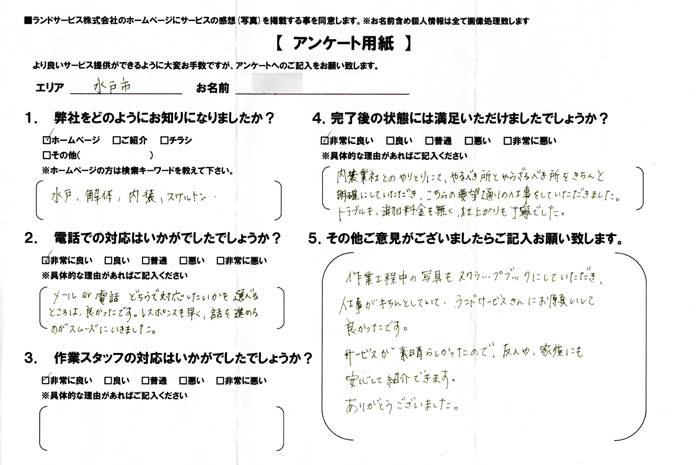 ■ランドサービス株式会社のホームページにサービスの感想（写真）を掲載する事を同意します。※お名前含め個人情報は全て画像処理致します
【 アンケート用紙 】
より良いサービス提供ができるように大変お手数ですが、アンケートへのご記入をお願い致します。
エリア 水戸市 お名前
1. 弊社をどのようにお知りになりましたか？
☑ホームページ □ご紹介 □チラシ
□その他( )
※ホームページの方は検索キーワードを教えて下さい。
水戸、解体、内装、スケルトン
2. 電話での対応はいかがでしたでしょうか？
☑非常に良い □良い □普通 □悪い □非常に悪い
※具体的な理由があればご記入ください
メール or 電話 どちらで対応したいかも選べる
ところは、良かったです。レスポンスも早く、話を進める
のがスムーズにいきました。
3. 作業スタッフの対応はいかがでしたでしょうか？
☑非常に良い □良い □普通 □悪い □非常に悪い
※具体的な理由があればご記入ください
4. 完了後の状態には満足いただけましたでしょうか？
☑非常に良い □良い □普通 □悪い □非常に悪い
※具体的な理由があればご記入ください
内装業社とのやりとりにて、やるべき所とやらざるべき所をきちんと
明確にしていただき、こちらの要望通りの仕事をしていただきました。
トラブルも、追加料金も無く、仕上がりも丁寧でした。
5. その他ご意見がございましたらご記入お願い致します。
作業工程中の写真もスクラップブックにしていただき、
仕事がきちんとしていて、ランドサービスさんにお願いして
良かったです。
サービスが素晴らしかったので、友人や、家族にも
安心して紹介できます。
ありがとうございました。